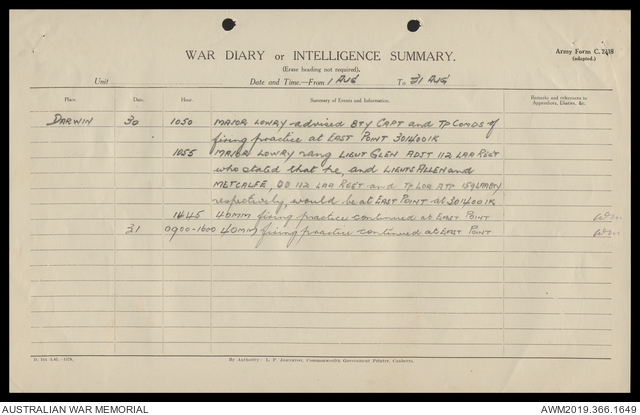 WAR DIARY or INTELLIGENCE SUMMARY.
Army Form C. 2118
(adapted.)
(Erase heading not required).
Unit
Date and Time.—From 1 AUG To 31 AUG
Place. Date. Hour. Summary of Events and Information. Remarks and references to Appendices, Diaries, &c.
DARWIN 30 1050 MAJOR LOWRY advised BTY CAPT and TP COMDS of
firing practice at EAST POINT 301400K
1055 MAJOR LOWRY rang LIEUT GLEN ADJT 112 LAA REGT
who stated that he, and LIEUTS ALLEN and
METCALFE, 112 LAA REGT and TP LDR ATP 159 LAA BTY
respectively, would be at EAST POINT at 301400K
1445 40MM firing practice continued at EAST POINT
31 0900-1600 40MM firing practice continued at EAST POINT
By Authority: L. F. Johnston, Commonwealth Government Printer, Canberra.
AUSTRALIAN WAR MEMORIAL
AWM2019.366.1649